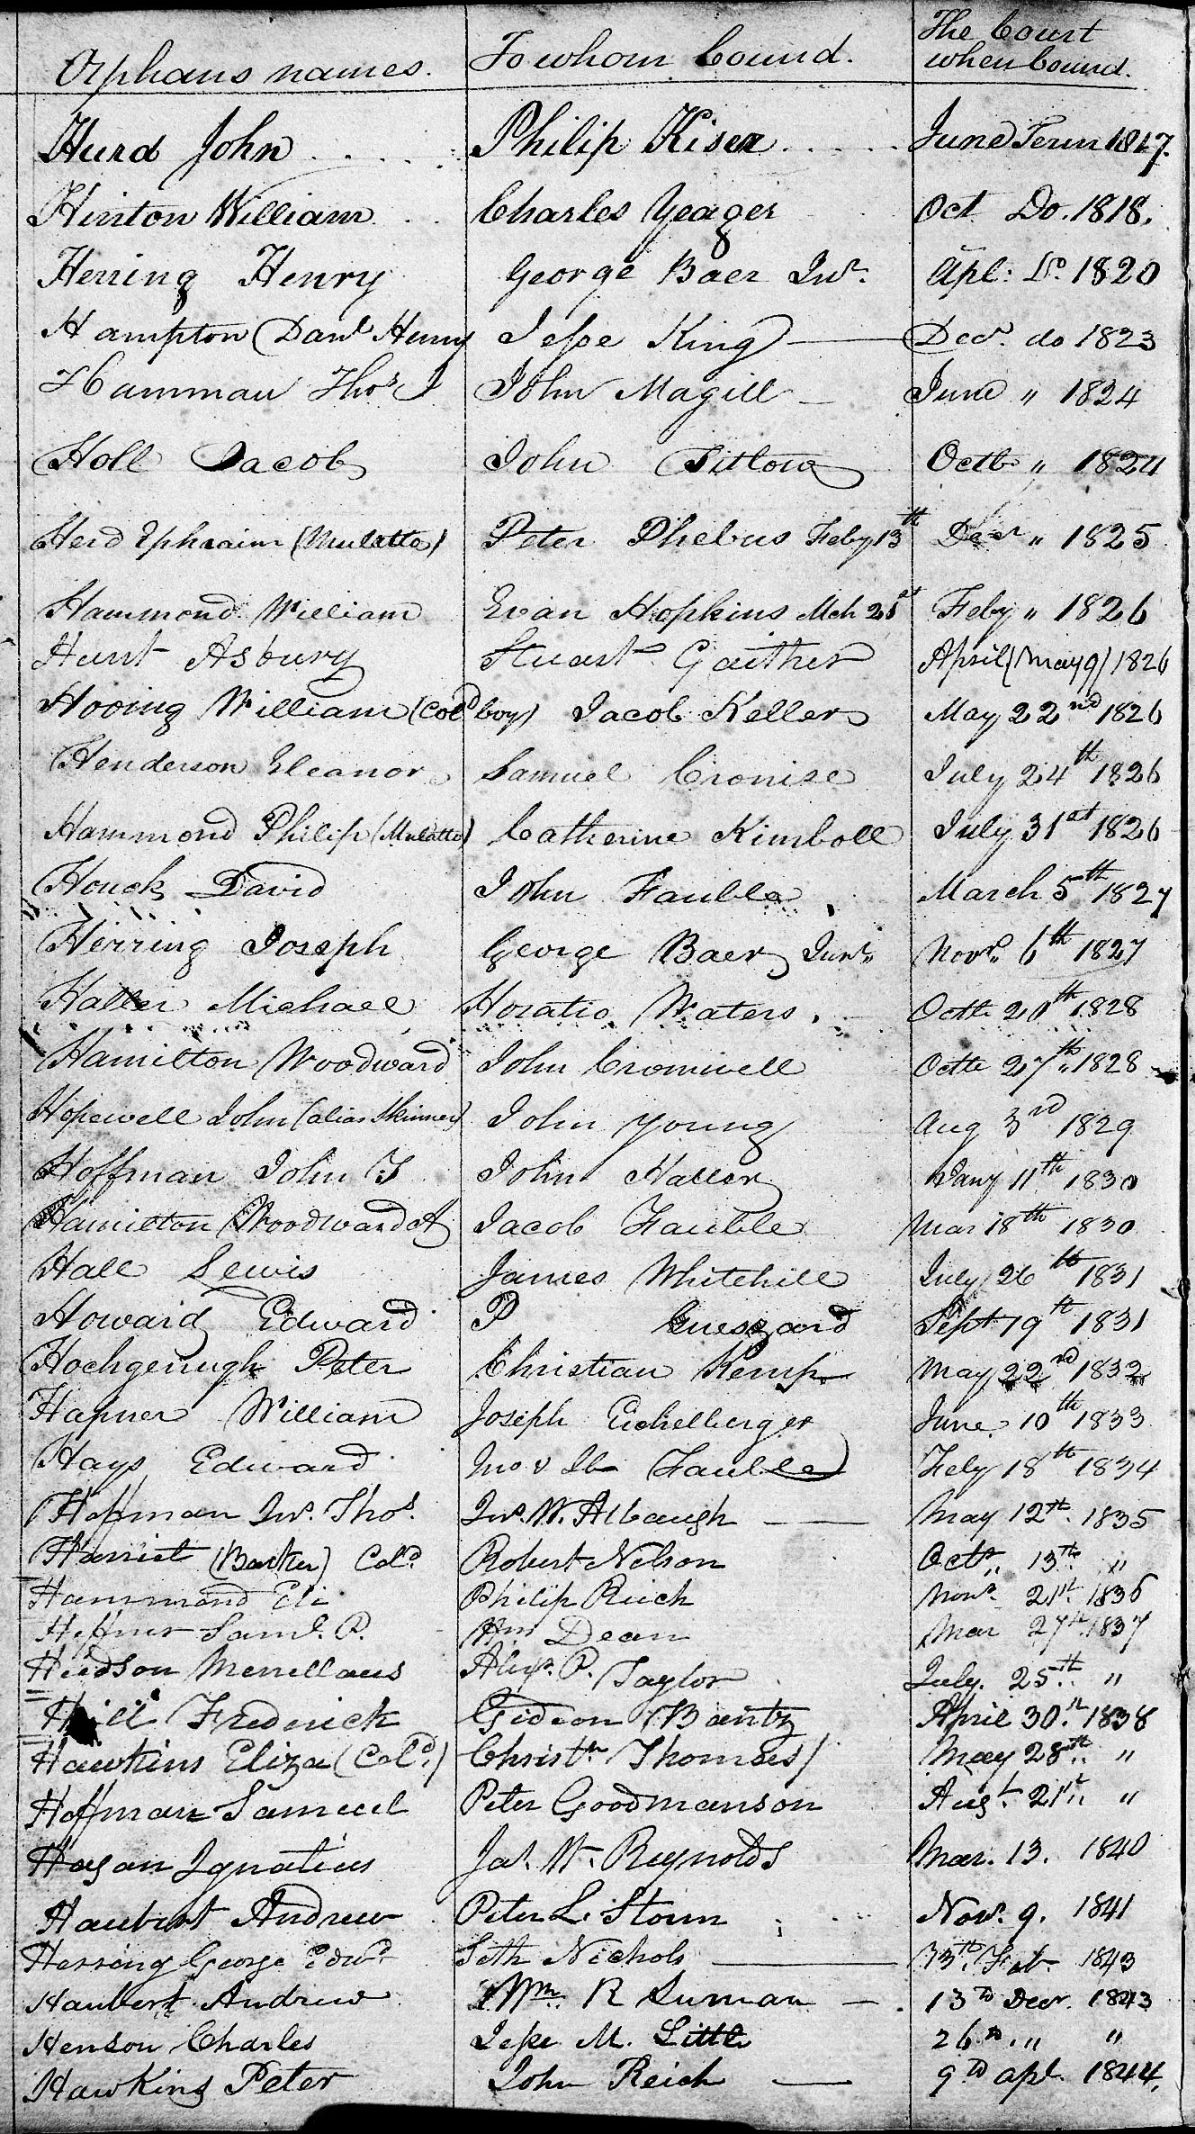 Orphans names. To whom bound. The Court when bound.
Hurd John Philip Kiser June Term 1817.
Hinton William Charles Yeager Oct Do. 1818.
Herring Henry George Baer Junr. Apl: Do 1820
Hampton Danl Henry Jesse King Decr. do 1823
Hamman Thos J John Magill June " 1824
Holl Jacob John Titlow Octb " 1824
Herd Ephraim (Mulatto) Peter Phebus Feby 13th Decr " 1825
Hammond William Evan Hopkins Mch 21st Feby " 1826
Hunt Asbury Stuart Gaither April (May 9) 1826
Hooing William (Cold boy) Jacob Keller May 22nd 1826
Henderson Eleanor Samuel Cronise July 24th 1826
Hammond Philip (Mulatto) Catherine Kimboll July 31st 1826
Houck David John Fauble March 5th 1827
Herring Joseph George Baer Junr. Novr. 6th 1827
Haller Michael Horatio Waters. Octb 20th 1828
Hamilton Woodward John Cromwell Octb 27th 1828
Hopewell John (alias Skinner) John Young Aug 3rd 1829
Hoffman John T John Haller Jany 11th 1830
Hamilton Woodward A Jacob Fauble Mar 18th 1830
Hall Lewis James Whitehill July 26th 1831
Howard Edward P Gueszard Sept 19th 1831
Hochgenugh Peter Christian Kemp May 22nd 1832
Hapner William Joseph Eichelberger June 10th 1833
Hays Edward Fauble Feby 18th 1834
Hoffman Jno. Thos. Jno. W. Albaugh May 12th. 1835
Harriet (Barker) Cold. Robert Nelson Octr. 13th "
Hammond Eli Philip Reich Novr. 21st. 1836
Heffner Saml. P. Wm Dean Mar 27th. 1837
Hudson Merrellaus Alexr. P. Taylor July. 25th "
Hill Frederick Gideon Bantz April 30th 1838
Hawkins Eliza (Cold.) Christn Thomas May 28th "
Hoffman Samuel Peter Goodmanson Augt. 21st "
Hagan Ignatius Jas. W. Reynolds Mar. 13. 1840
Haubert Andrew Peter L. Storm Nov. 9. 1841
Herring George Edwd Seth Nichols 13th Feb. 1843
Haubert Andrew Wm. R Suman 13th Decr. 1843
Henson Charles Jesse M. Little 26th " "
Hawkins Peter John Reich 9th apl. 1844.